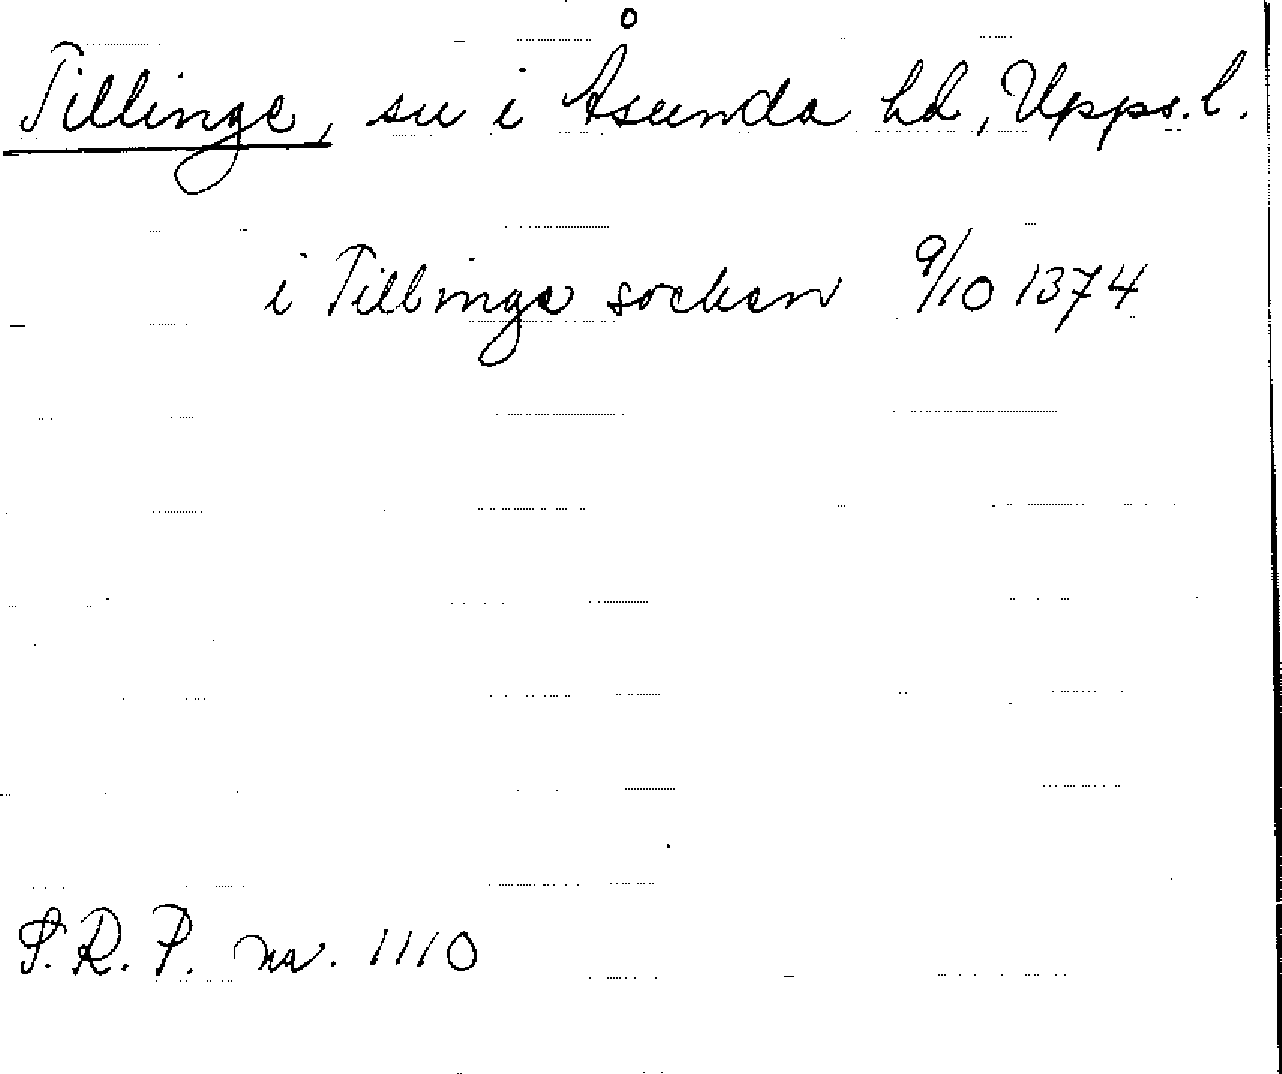 Tillinge, sn i Åsunda hd, Upps. l.
i Tillinge socken 9/10 1374
S.R.P. nr. 1110